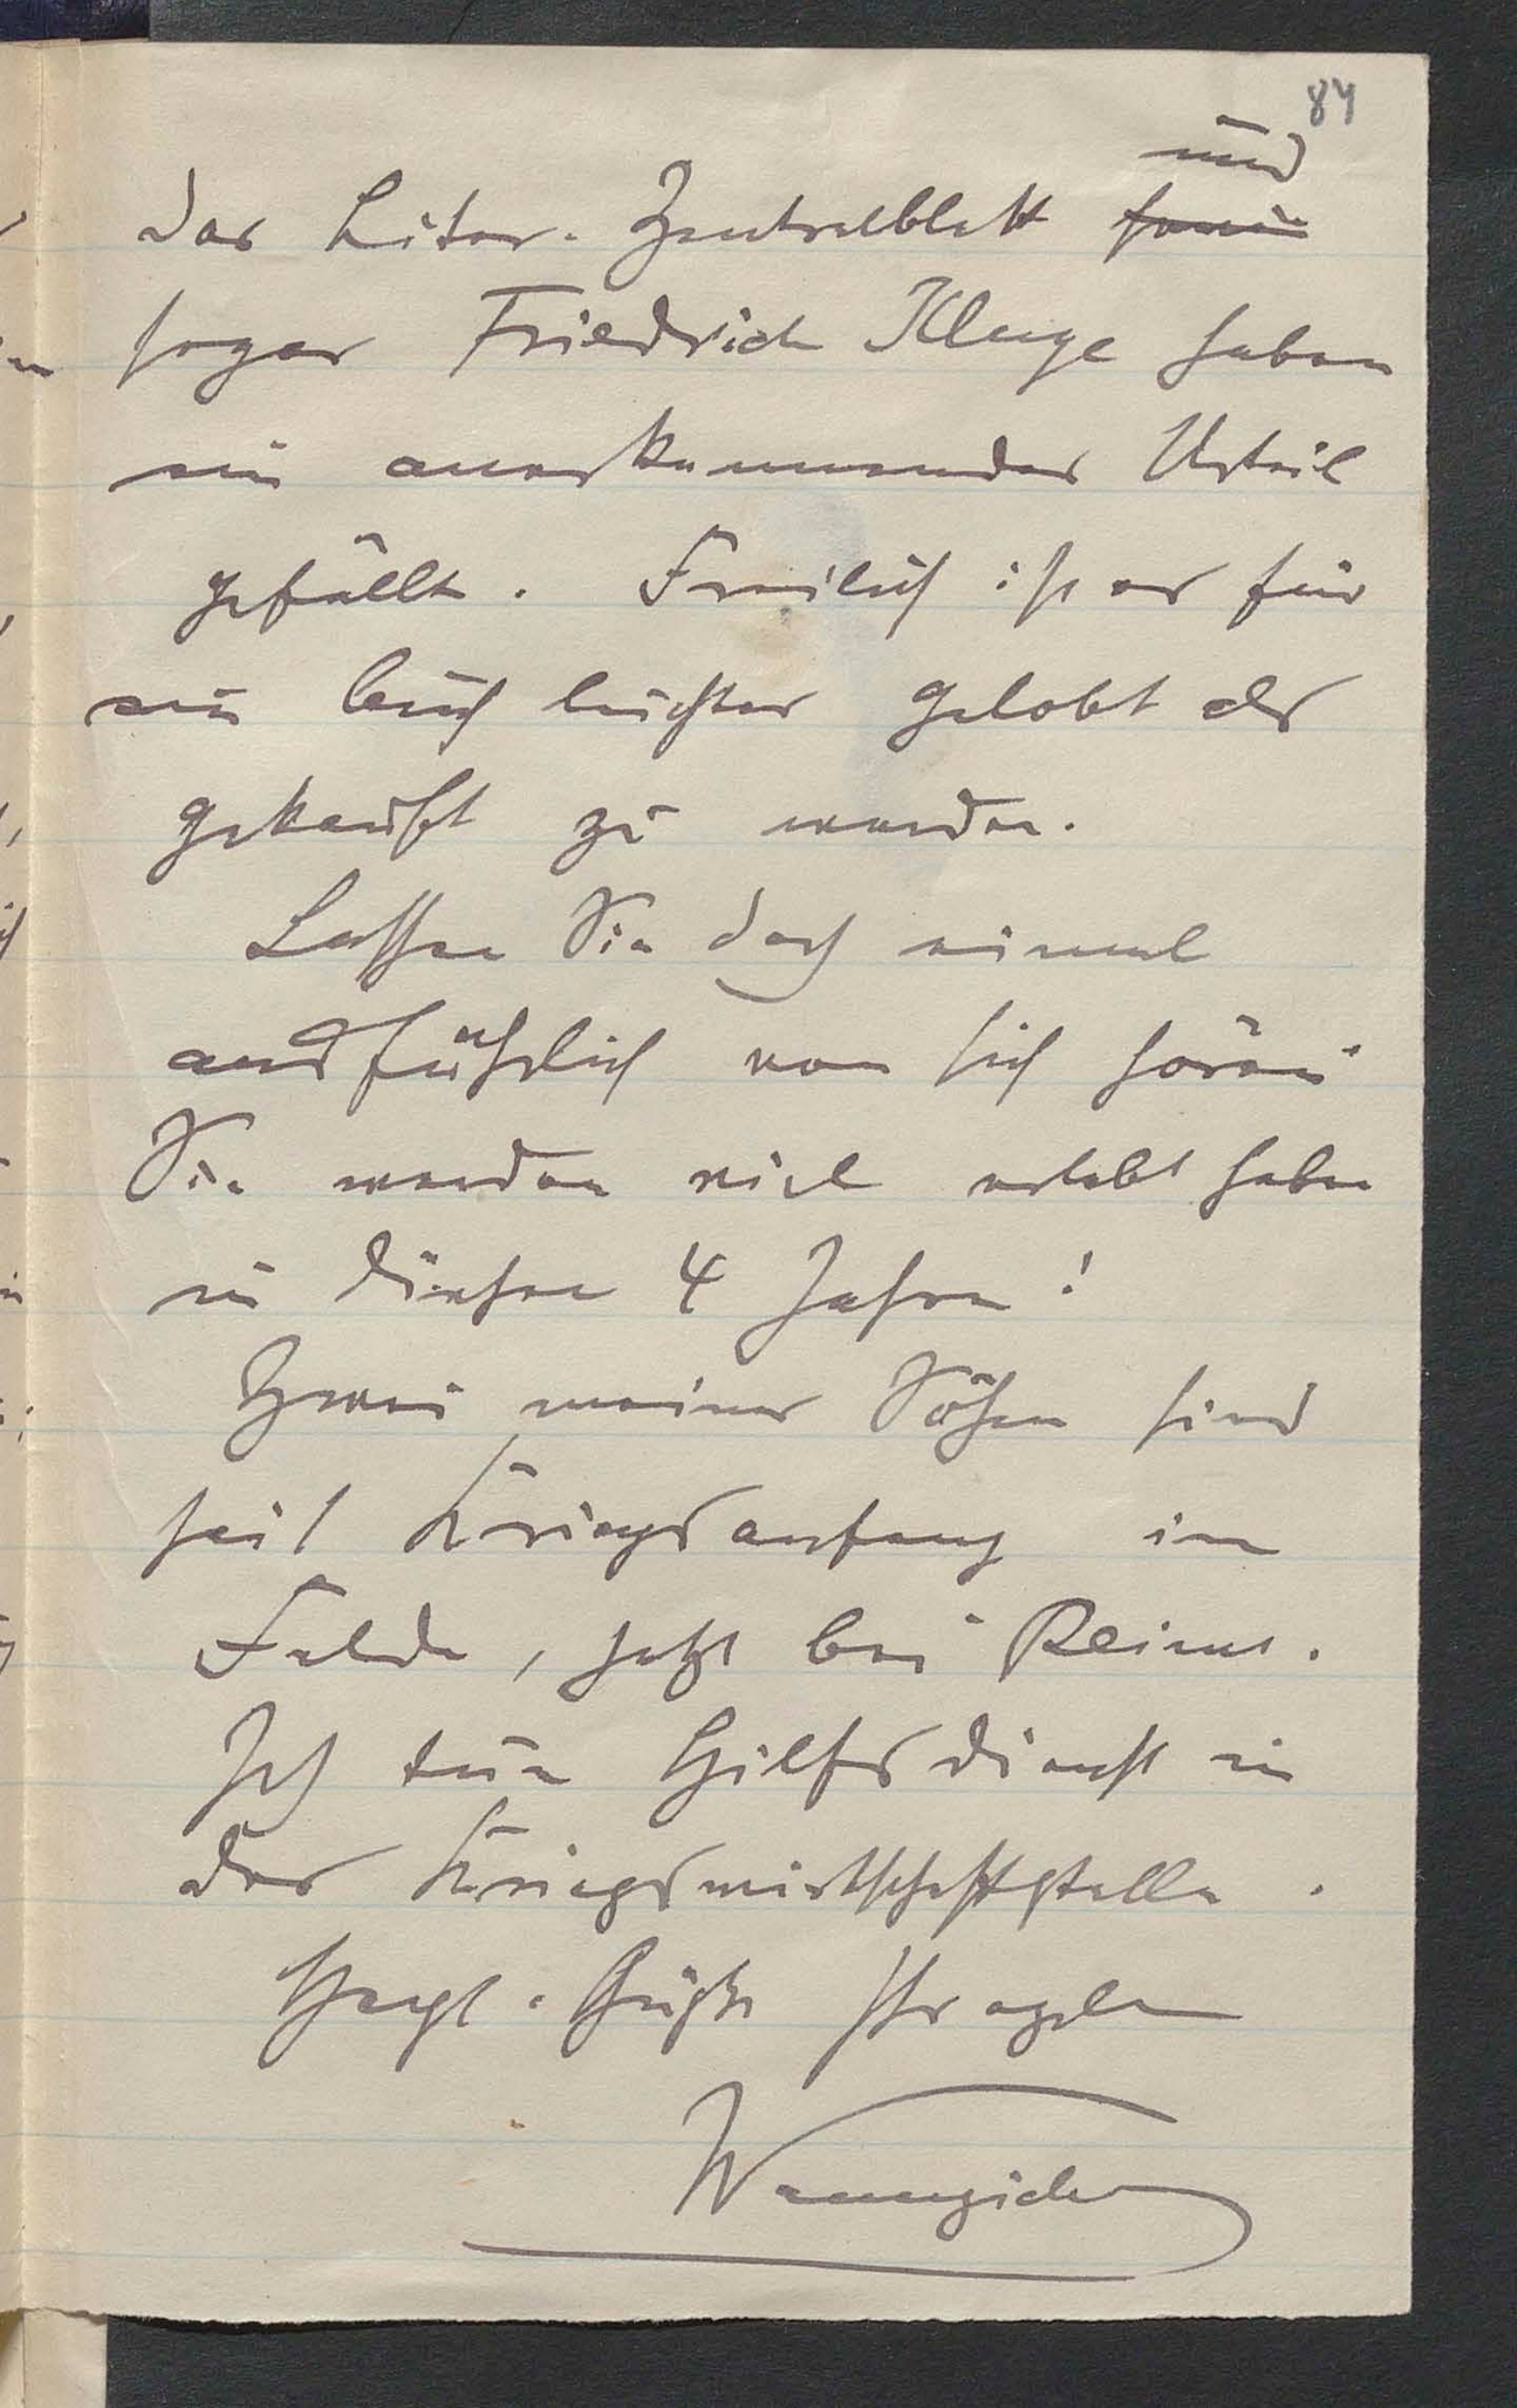 84
und
das Liter. Zentralblatt sowie
sogar Friedrich Kluge haben
ein anerkennendes Urteil
gefällt. Freilich ist es für
ein Buch leichter gelobt als
gekauft zu werden.
Lassen Sie doch einmal
ausführlich von sich hören
Sie werden viel erlebt haben
in diesen 4 Jahren!
Zwei meiner Söhne sind
seit Kriegsanfang im
Felde, jetzt bei Reims.
Ich tue Hilfsdienst in
der Kriegswirtschaftsstelle.
Herzl. Grüße Ihr ergebn